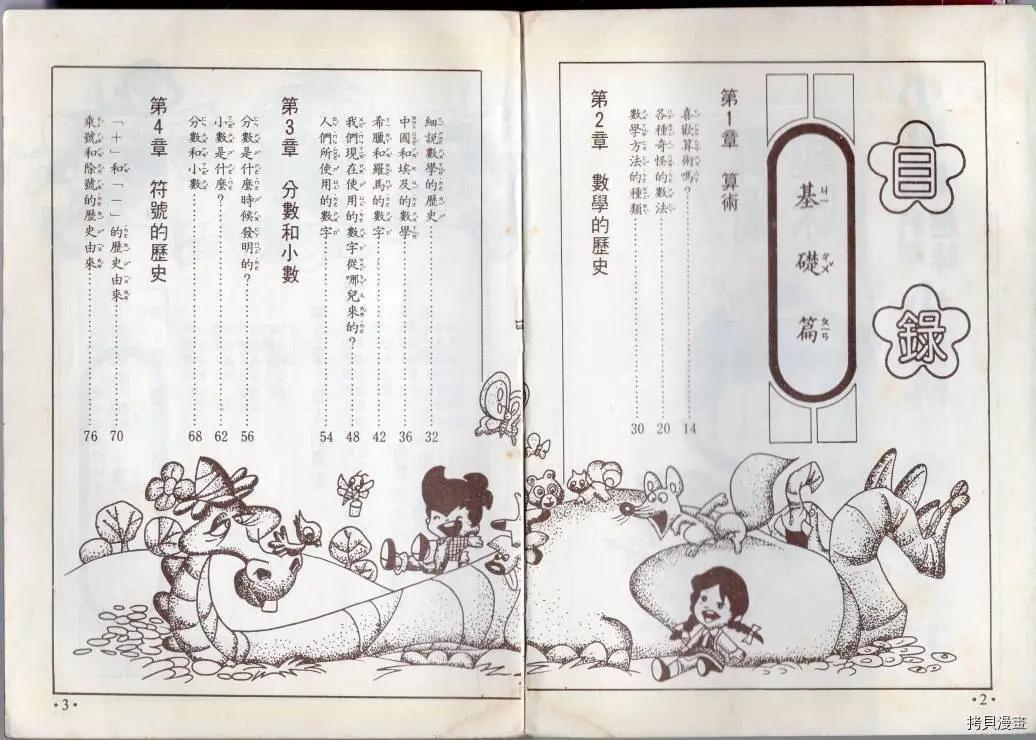 目錄
基礎篇
ㄐㄧ ㄔㄨˇ ㄆㄧㄢ
第1章 算術
喜歡算術嗎？……14
各種奇怪的數法……20
數學方法的種類……30
第2章 數學的歷史
細說數學的歷史……32
中國和埃及的數學……36
希臘和羅馬的數字……42
我們現在使用的數字從哪兒來的？……48
人們所使用的數字……54
第3章 分數和小數
分數是什麼時候發明的？……56
小數是什麼？……62
分數和小數……68
第4章 符號的歷史
「＋」和「－」的歷史由來……70
乘號和除號的歷史由來……76
•2•
•3•
拷貝漫畫